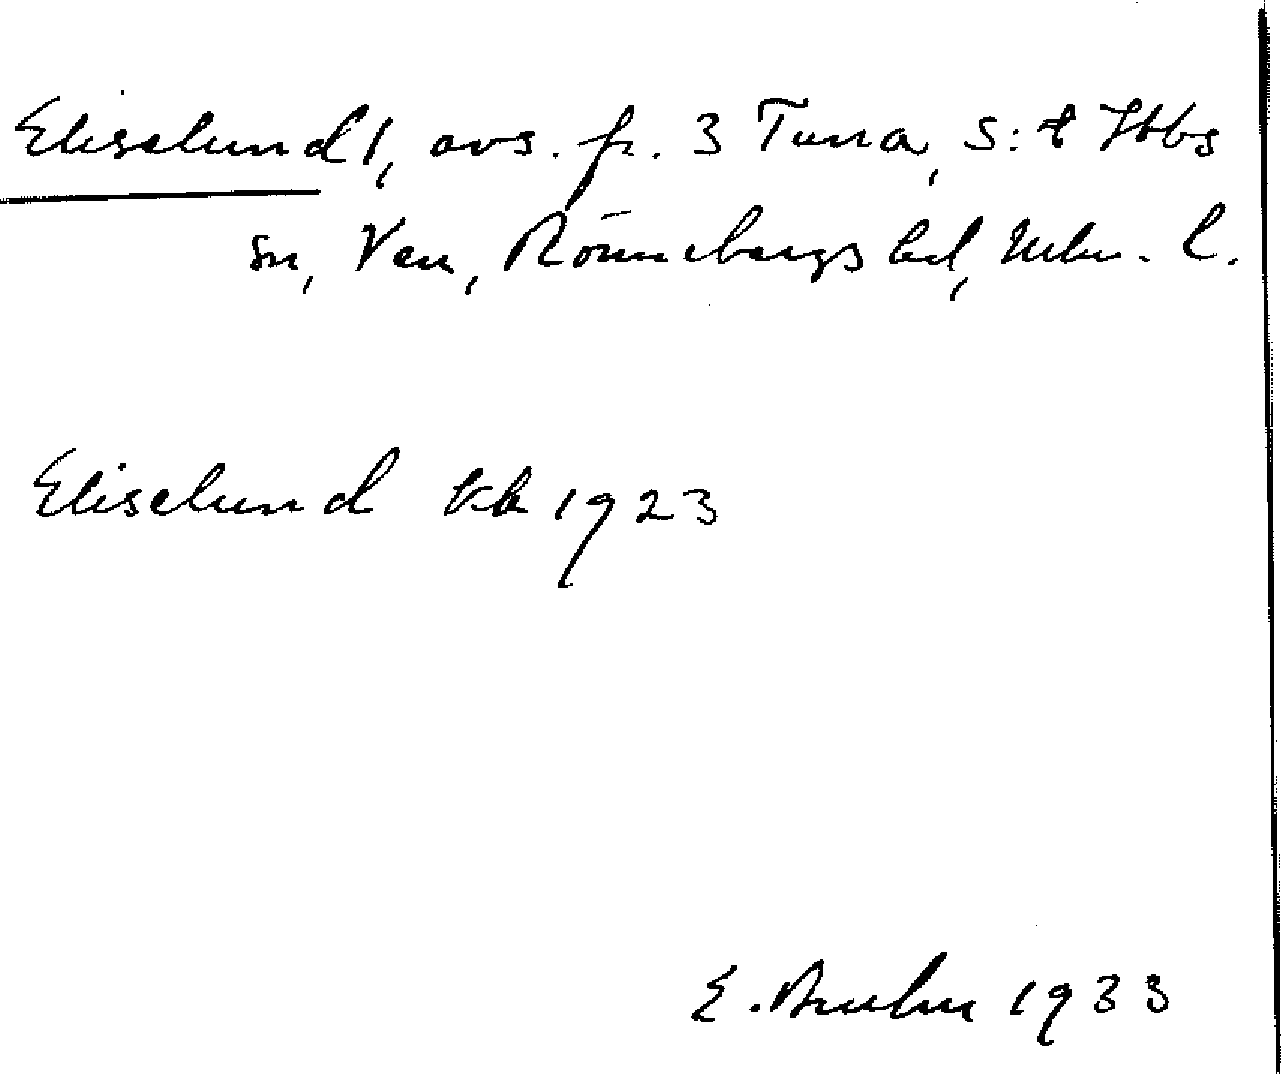 Eliselund 1, avs. fr. 3 Tuna, S:t Ibbs
sn, Ven, Rönnebergs hd, Mlm. l.
Eliselund kb 1923
E. Bruhn 1933